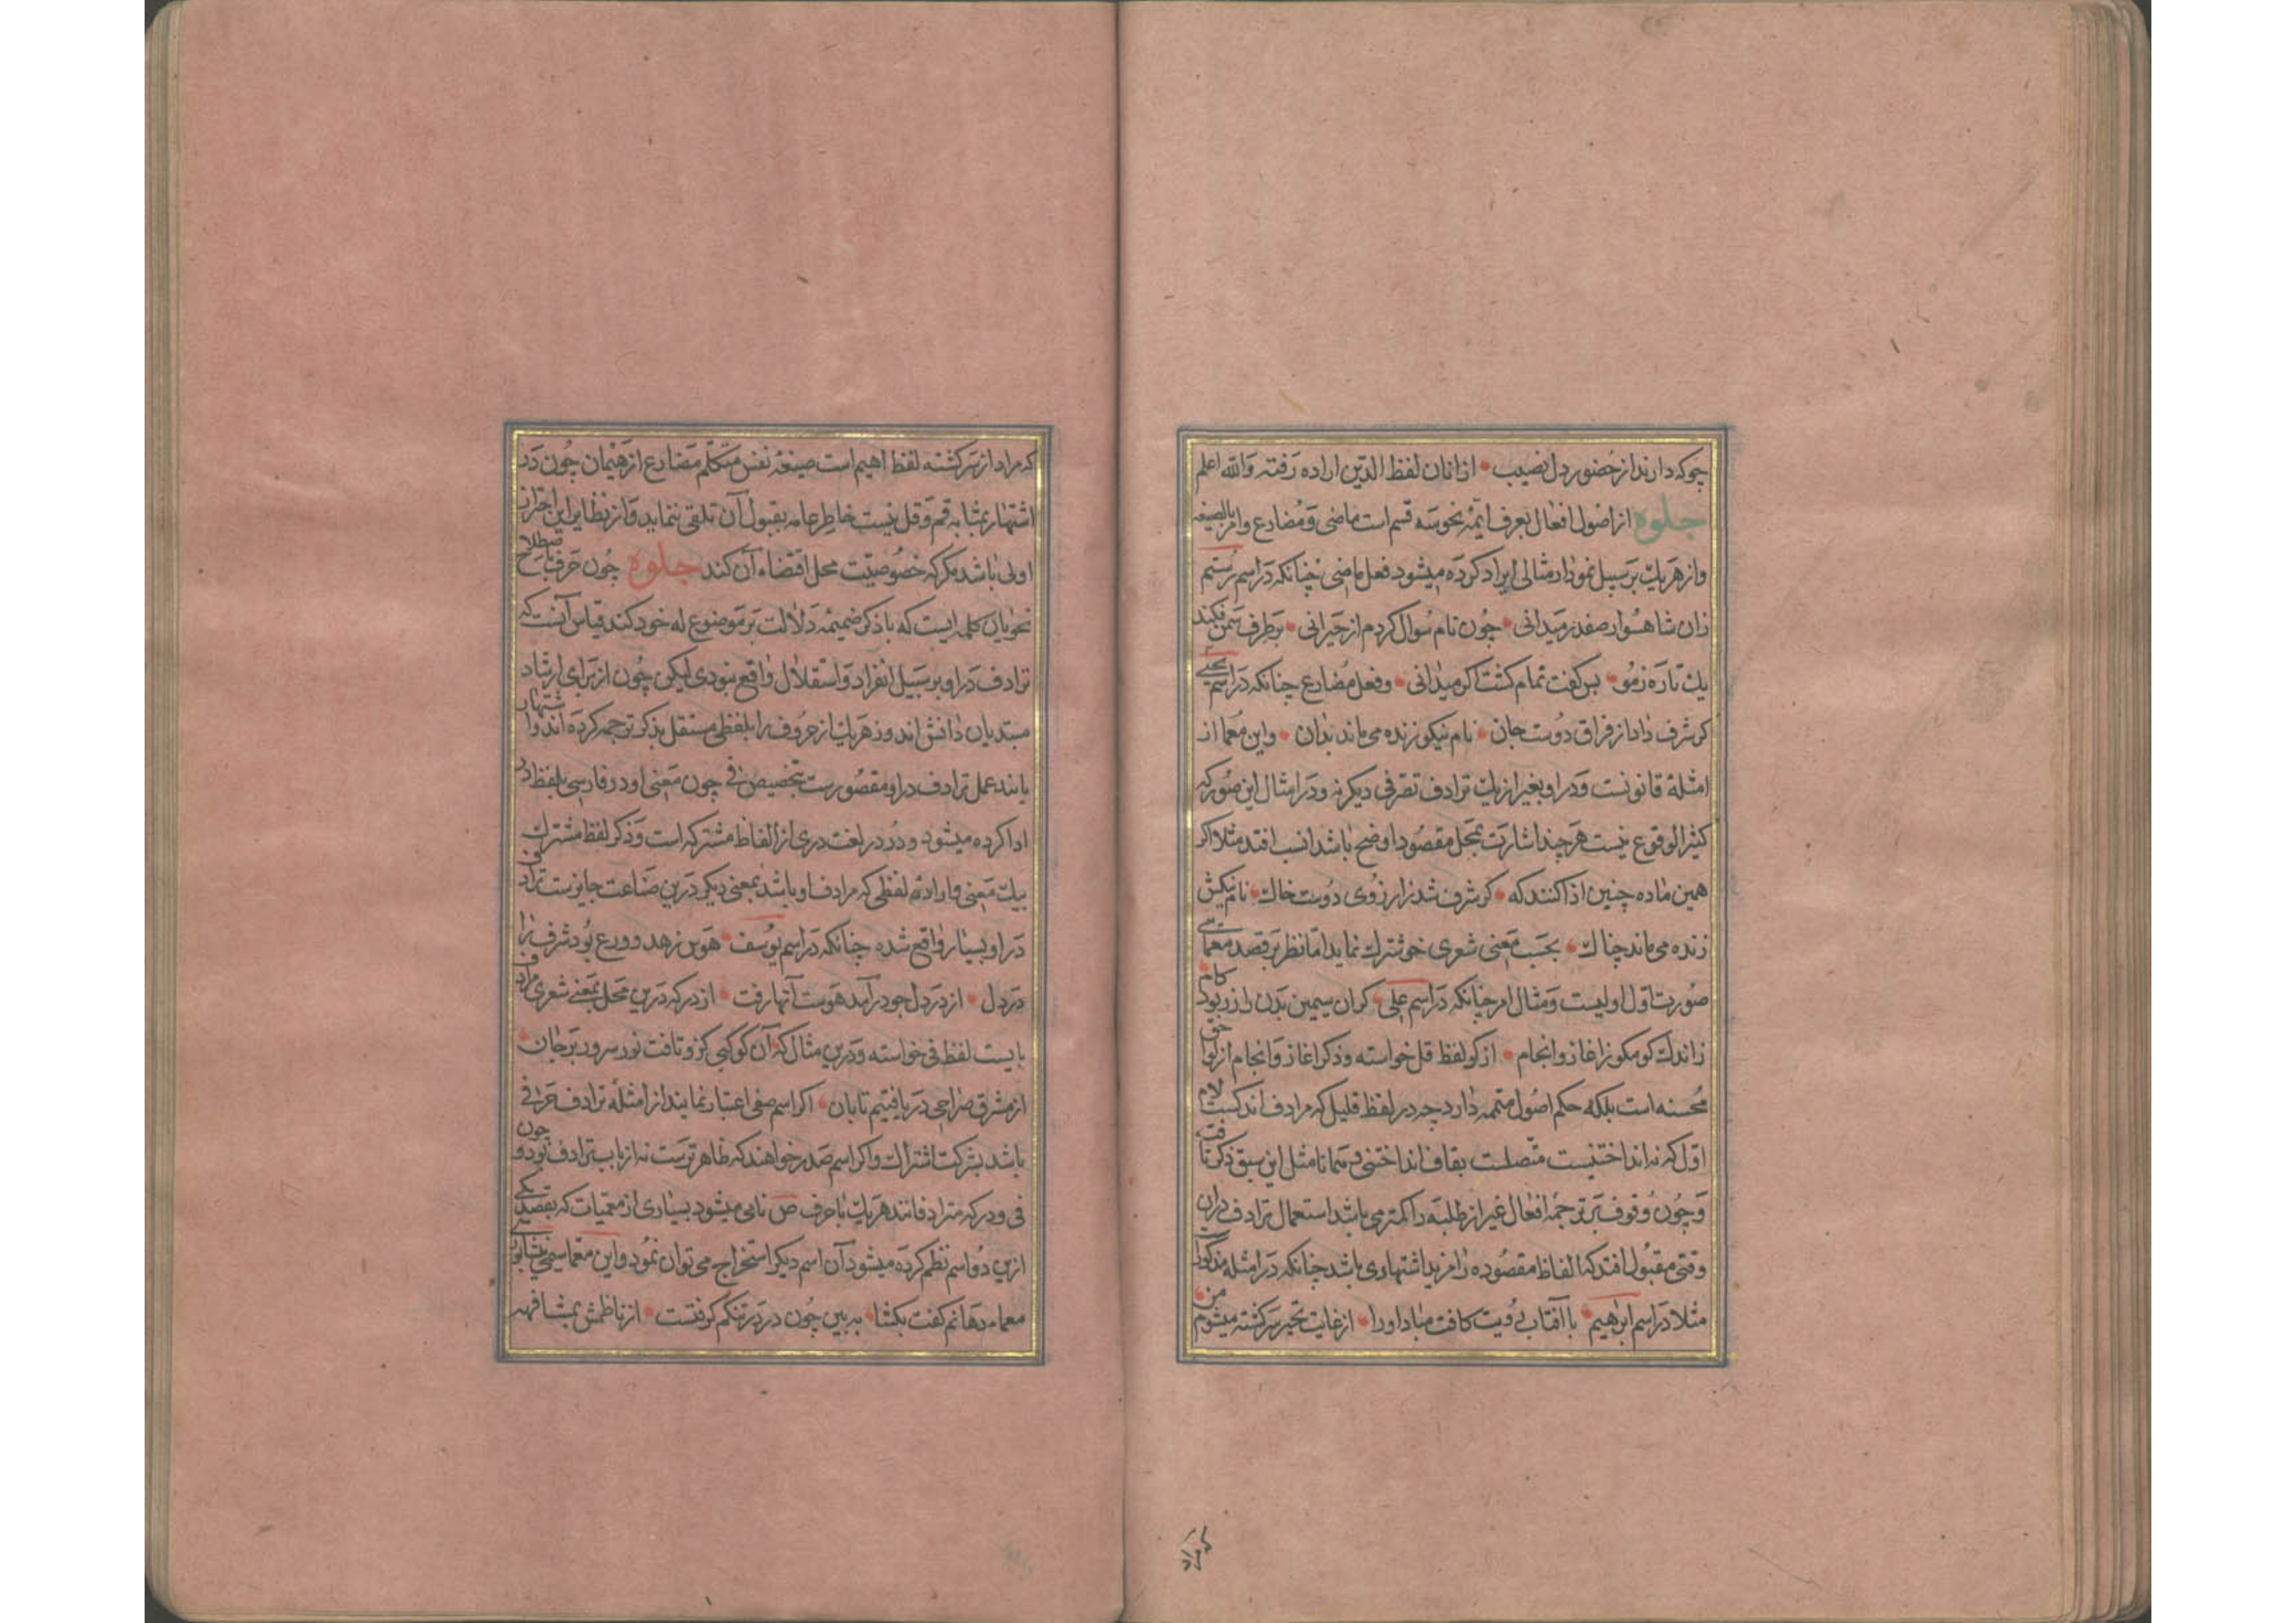 چو که دارند از حضور دل نصیب • از انان لفظ الدین اراده رفته والله اعلم
جلوه از اصول افعال بعرف ایمهٔ نحو سه قسم است ماضی و مضارع و امر بالصیغه
و از هر یک بر سبیل نمودار مثالی ایراد کرده میشود فعل ماضی چنانکه در اسم رستم
زان شاهسوار صفدر میدانی • چون نام سوال کردم از حیرانی • بر طرف سمن فکند
یک تاره ز مو • پس کفت تمام کشت اکر میدانی • و فعل مضارع چنانکه در اسم یحیی
کر شرف داد از فراق دوست جان • نام نیکو زنده می ماند بدان • و این معما از
امثلهٔ قانونست و در او بغیر از یک ترادف تصرفی دیکر نه و در امثال این صور که
کثیر الوقوع نیست هر چند اشارت بمحل مقصود اوضح باشد انسب افتد مثلا اکر
همین ماده چنین ادا کنند که • کر شرف شد ز ارزوی دوست خاک • نام نیکش
زنده می ماند چه باک • بحسب معنی شعری خوشترک نماید اما نظر بر قصد معمائی
صورت اول اولیست و مثال امر چنانکه در اسم علی • کر ان سیمین بدن را زر بود کام
ز اندک کو مکو ز اغاز و انجام • از کو لفظ قل خواسته و ذکر اغاز و انجام از لواحق
محسنه است بلکه حکم اصول متممه دارد چه در لفظ قلیل که مرادف اندکست لام
اول که نه انداختنیست متصلست بقاف انداختنی و همانا مثل این سبق ذکر یافت
و چون وقوف بر ترجمهٔ افعال غیر از طلبه را کمتر می باشد استعمال ترادف در ان
وقتی مقبول افتد که الفاظ مقصوده را مزید اشتهاری باشد چنانکه در امثله مذکور
مثلا در اسم ابرهیم • با آفتاب رویت کافت مباد او را • از غایت تحیر سرکشته میشوم من
که مراد از سرکشته لفظ اهیم است صیغهٔ نفس متکلم مضارع از هیمان چون در
اشتهار بمثابه قم و قل نیست خاطر عامه بقبول آن تلقی ننماید و از نظایر این احتراز
اولی باشد مکر که خصوصیت محل اقتضاء آن کند جلوه چون حرف باصطلاح
نحویان کلمه ایست که با ذکر ضمیمه دلالت بر موضوع له خود کند قیاس آنست که
ترادف در او بر سبیل انفراد و استقلال واقع نبودی لیکن چون از برای ارشاد
مبتدیان دانش اندوز هر یک از حروف را بلفظی مستقل بذکر ترجمه کرده اند و اشتهار
یابند عمل ترادف در او مقصورست بتخصیص فی چون معنی او در فارسی بلفظ در
ادا کرده میشود و در در لغت دری از الفاظ مشترکه است و ذکر لفظ مشترک
بیک معنی و ارادهٔ لفظی که مرادف او باشد بمعنی دیکر درین صناعت جایزست ترادف
در او بسیار واقع شده چنانکه در اسم یوسف • هوس زهد و ورع بود شرف را
در دل • از در دل چو درآمد هوست آنها رفت • از در که درین محل بمعنی شعری مرادف
بایست لفظ فی خواسته و درین مثال که آن کوکبی کزو تافت نور سرور بر جان •
از مشرق صراحی دریافتیم تابان • اکر اسم صفی اعتبار نمایند از امثلهٔ ترادف حرفی
باشد بشرکت اشتراک و اکر اسم صدر خواهند که ظاهر ترست نه از باب ترادف بود و چون
فی و در که مترادفانند هر یک با حرف ص نامی میشود بسیاری از معمیات که بقصد یکی
ازین دو اسم نظم کرده میشود آن اسم دیکر استخراج می توان نمود و این معما سیمی نیشابوری
معماء دهانم کفت بکشا • ببین چون در در تنکم کرفتست • از ناظمش بمشافهه